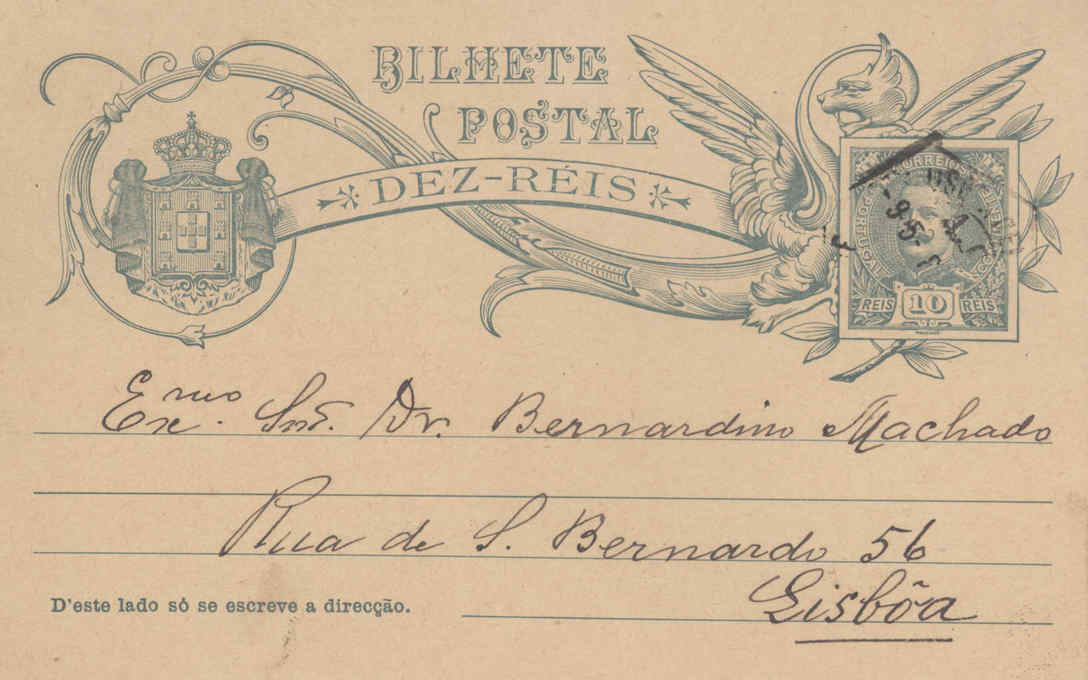 BILHETE
POSTAL
DEZ-RÉIS
CORREIOS
PORTUGAL
REIS 10 REIS
Exmo. Snr. Dr. Bernardino Machado
Rua de S. Bernardo 56
D'este lado só se escreve a direcção.
Lisbôa